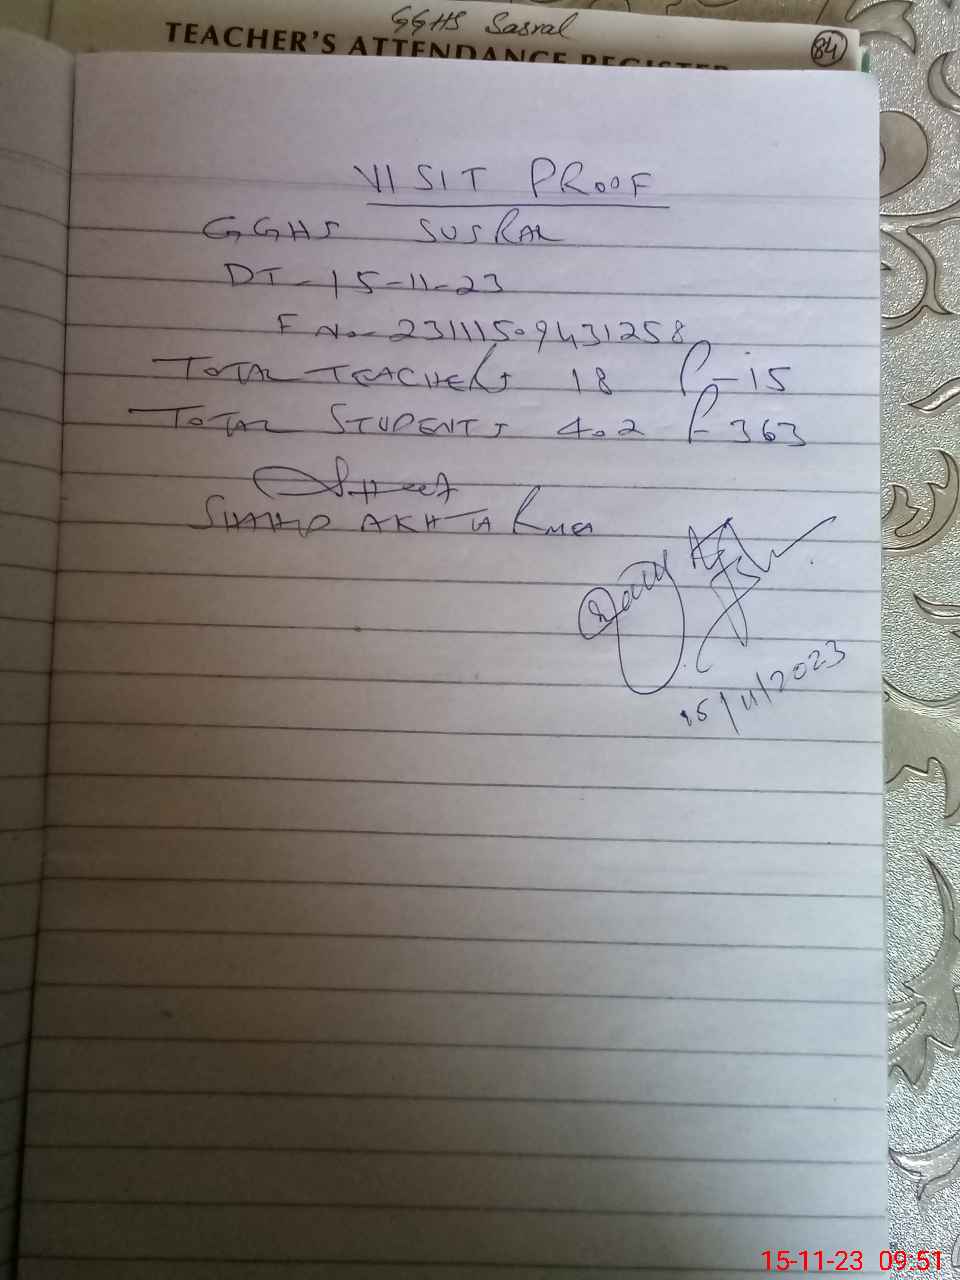 GGHS Sasral
TEACHER'S ATTENDANCE REGISTER
84
VISIT PROOF
GGHS SUSRAL
DT-15-11-23
F No- 23111509431258
TOTAL TEACHERS 18 P-15
TOTAL STUDENTS 402 P-363
SHAHID AKHTAR MEA
15/11/2023
15-11-23 09:51